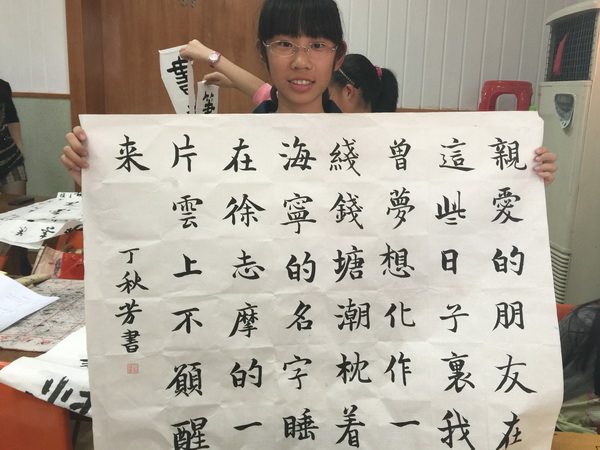 親愛的朋友在
這些日子裏我
曾夢想化作一
綫錢塘潮枕着
海寧的名字睡
在徐志摩的一
片雲上不願醒
来
丁秋芳書